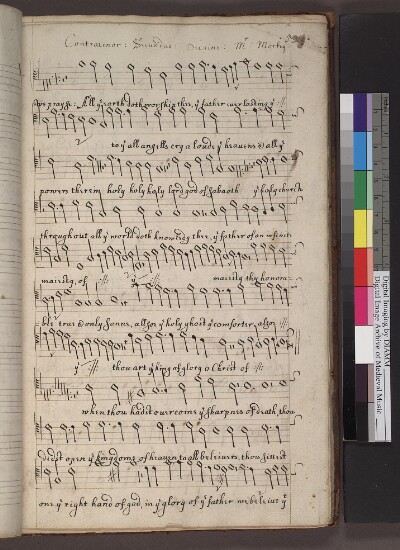 Contratenor: Secundus Decani: Mr Morley
We prayse: All ye earth doth worship thee, ye father euerlasting ye :||:
to ye all angells cry a loude ye heauens & all ye
powers therein holy holy holy lord god of sabaoth ye holy church
throughout all ye world doth knowledg thee, ye father of an infinite
maiesty, of :||: maiesty thy honora=
ble true & only sonne, allso ye holy ghost ye comforter, allso :||:
ye :||: thou art ye king of glory o Christ of :||:
when thou hadst ouercome ye sharpnes of death, thou
didst open ye kingdome of heauen to all beleiuers, thou sittest
one ye right hand of god, in ye glory of ye father we beleiue yt
Digital Imaging by DIAMM
Digital Image Archive of Medieval Music